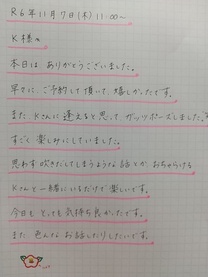 R6年11月7日(木) 11:00〜
K様へ
本日は ありがとうございました。
早々に ご予約して頂いて 嬉しかったです。
また Kさんに 逢えると思って ガッツポーズしました。
すごく 楽しみにしていました。
思わず 吹きだしてしまうような 話とか おちゃらける
Kさんと一緒にいるだけで 楽しいです。
今日も とっても 気持ち良かったです。
また 色んな お話したりしたいです。